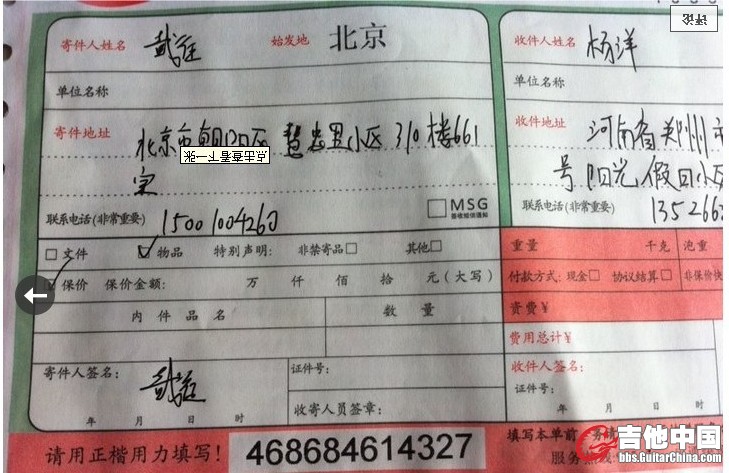 评论
寄件人姓名 武 始发地 北京 收件人姓名 杨洋
单位名称 单位名称
寄件地址 北京市朝阳区 慧忠里小区 310楼661 收件地址 河南省郑州市
点击查看下一张
室 号 阳光假日小区
联系电话(非常重要) 15001004260 MSG 签收短信通知 联系电话(非常重要) 13526
文件 物品 特别声明: 非禁寄品 其他 重量 千克 泡重
保价 保价金额: 万 仟 佰 拾 元(大写) 付款方式: 现金 协议结算 非保价快
内件品名 数量 资费¥
费用总计¥
寄件人签名: 武 证件号: 收件人签名:
证件号:
年 月 日 时 收寄人员签章: 年 月 日 时
请用正楷用力填写! 468684614327 填写本单前 务请
服务热线
吉他中国
bbs.GuitarChina.com